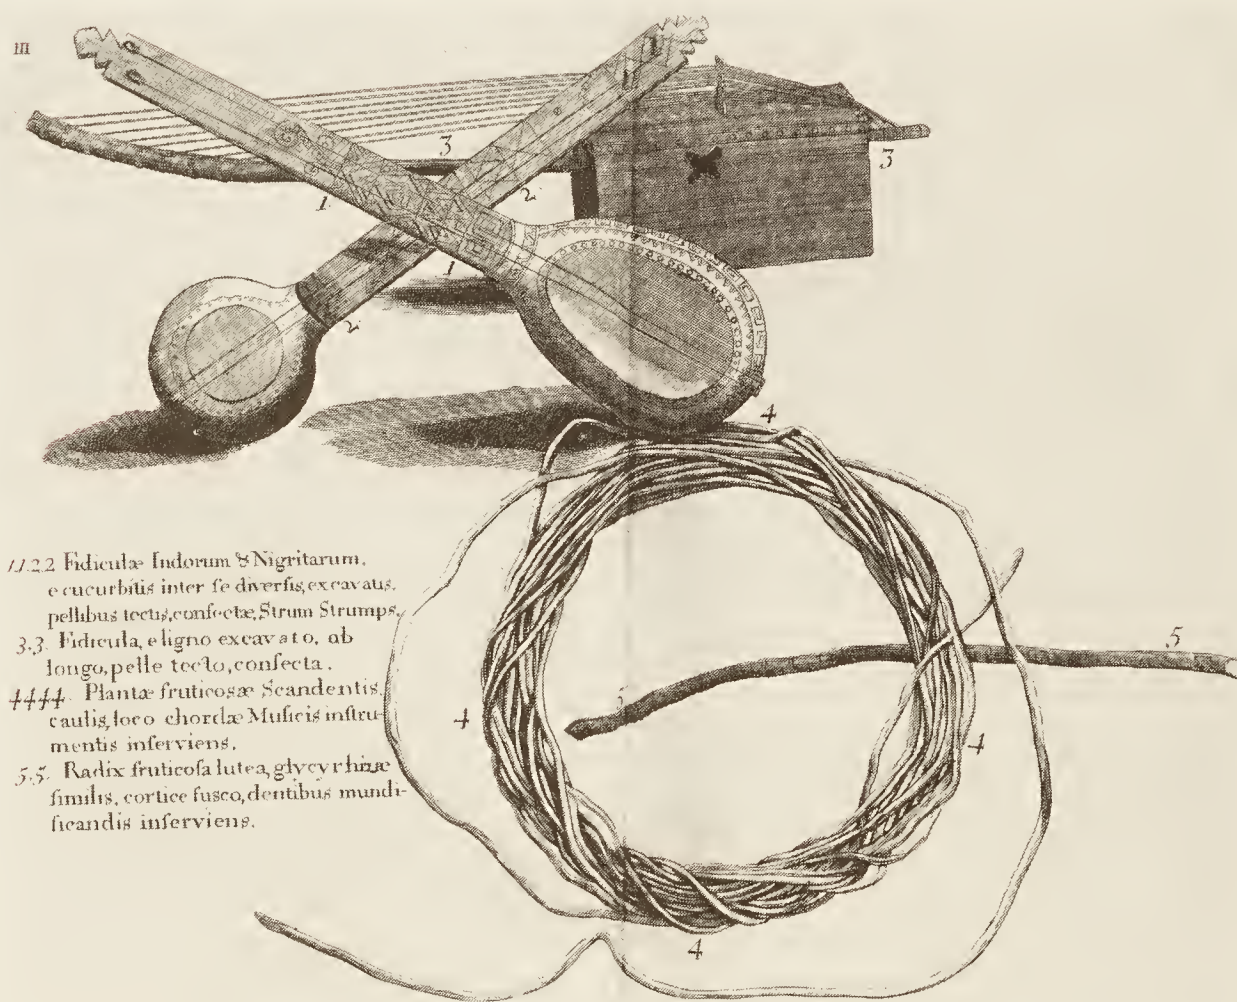 III
3
3
1
2
1
2
4
1.1.2.2 Fidiculæ Indorum & Nigritarum,
e cucurbitis inter ſe diverſis, excavatis,
pellibus tectis, confectæ, Strum Strumps.
3.3. Fidicula, e ligno excavato, ob
longo, pelle tecto, confecta.
4444. Plantæ fruticosæ Scandentis,
caulis, loco chordæ Muſicis inſtru-
mentis inſerviens.
5.5. Radix fruticoſa lutea, glycyrhizæ
ſimilis, cortice fuſco, dentibus mundi-
ficandis inſerviens.
5
5
4
4
4